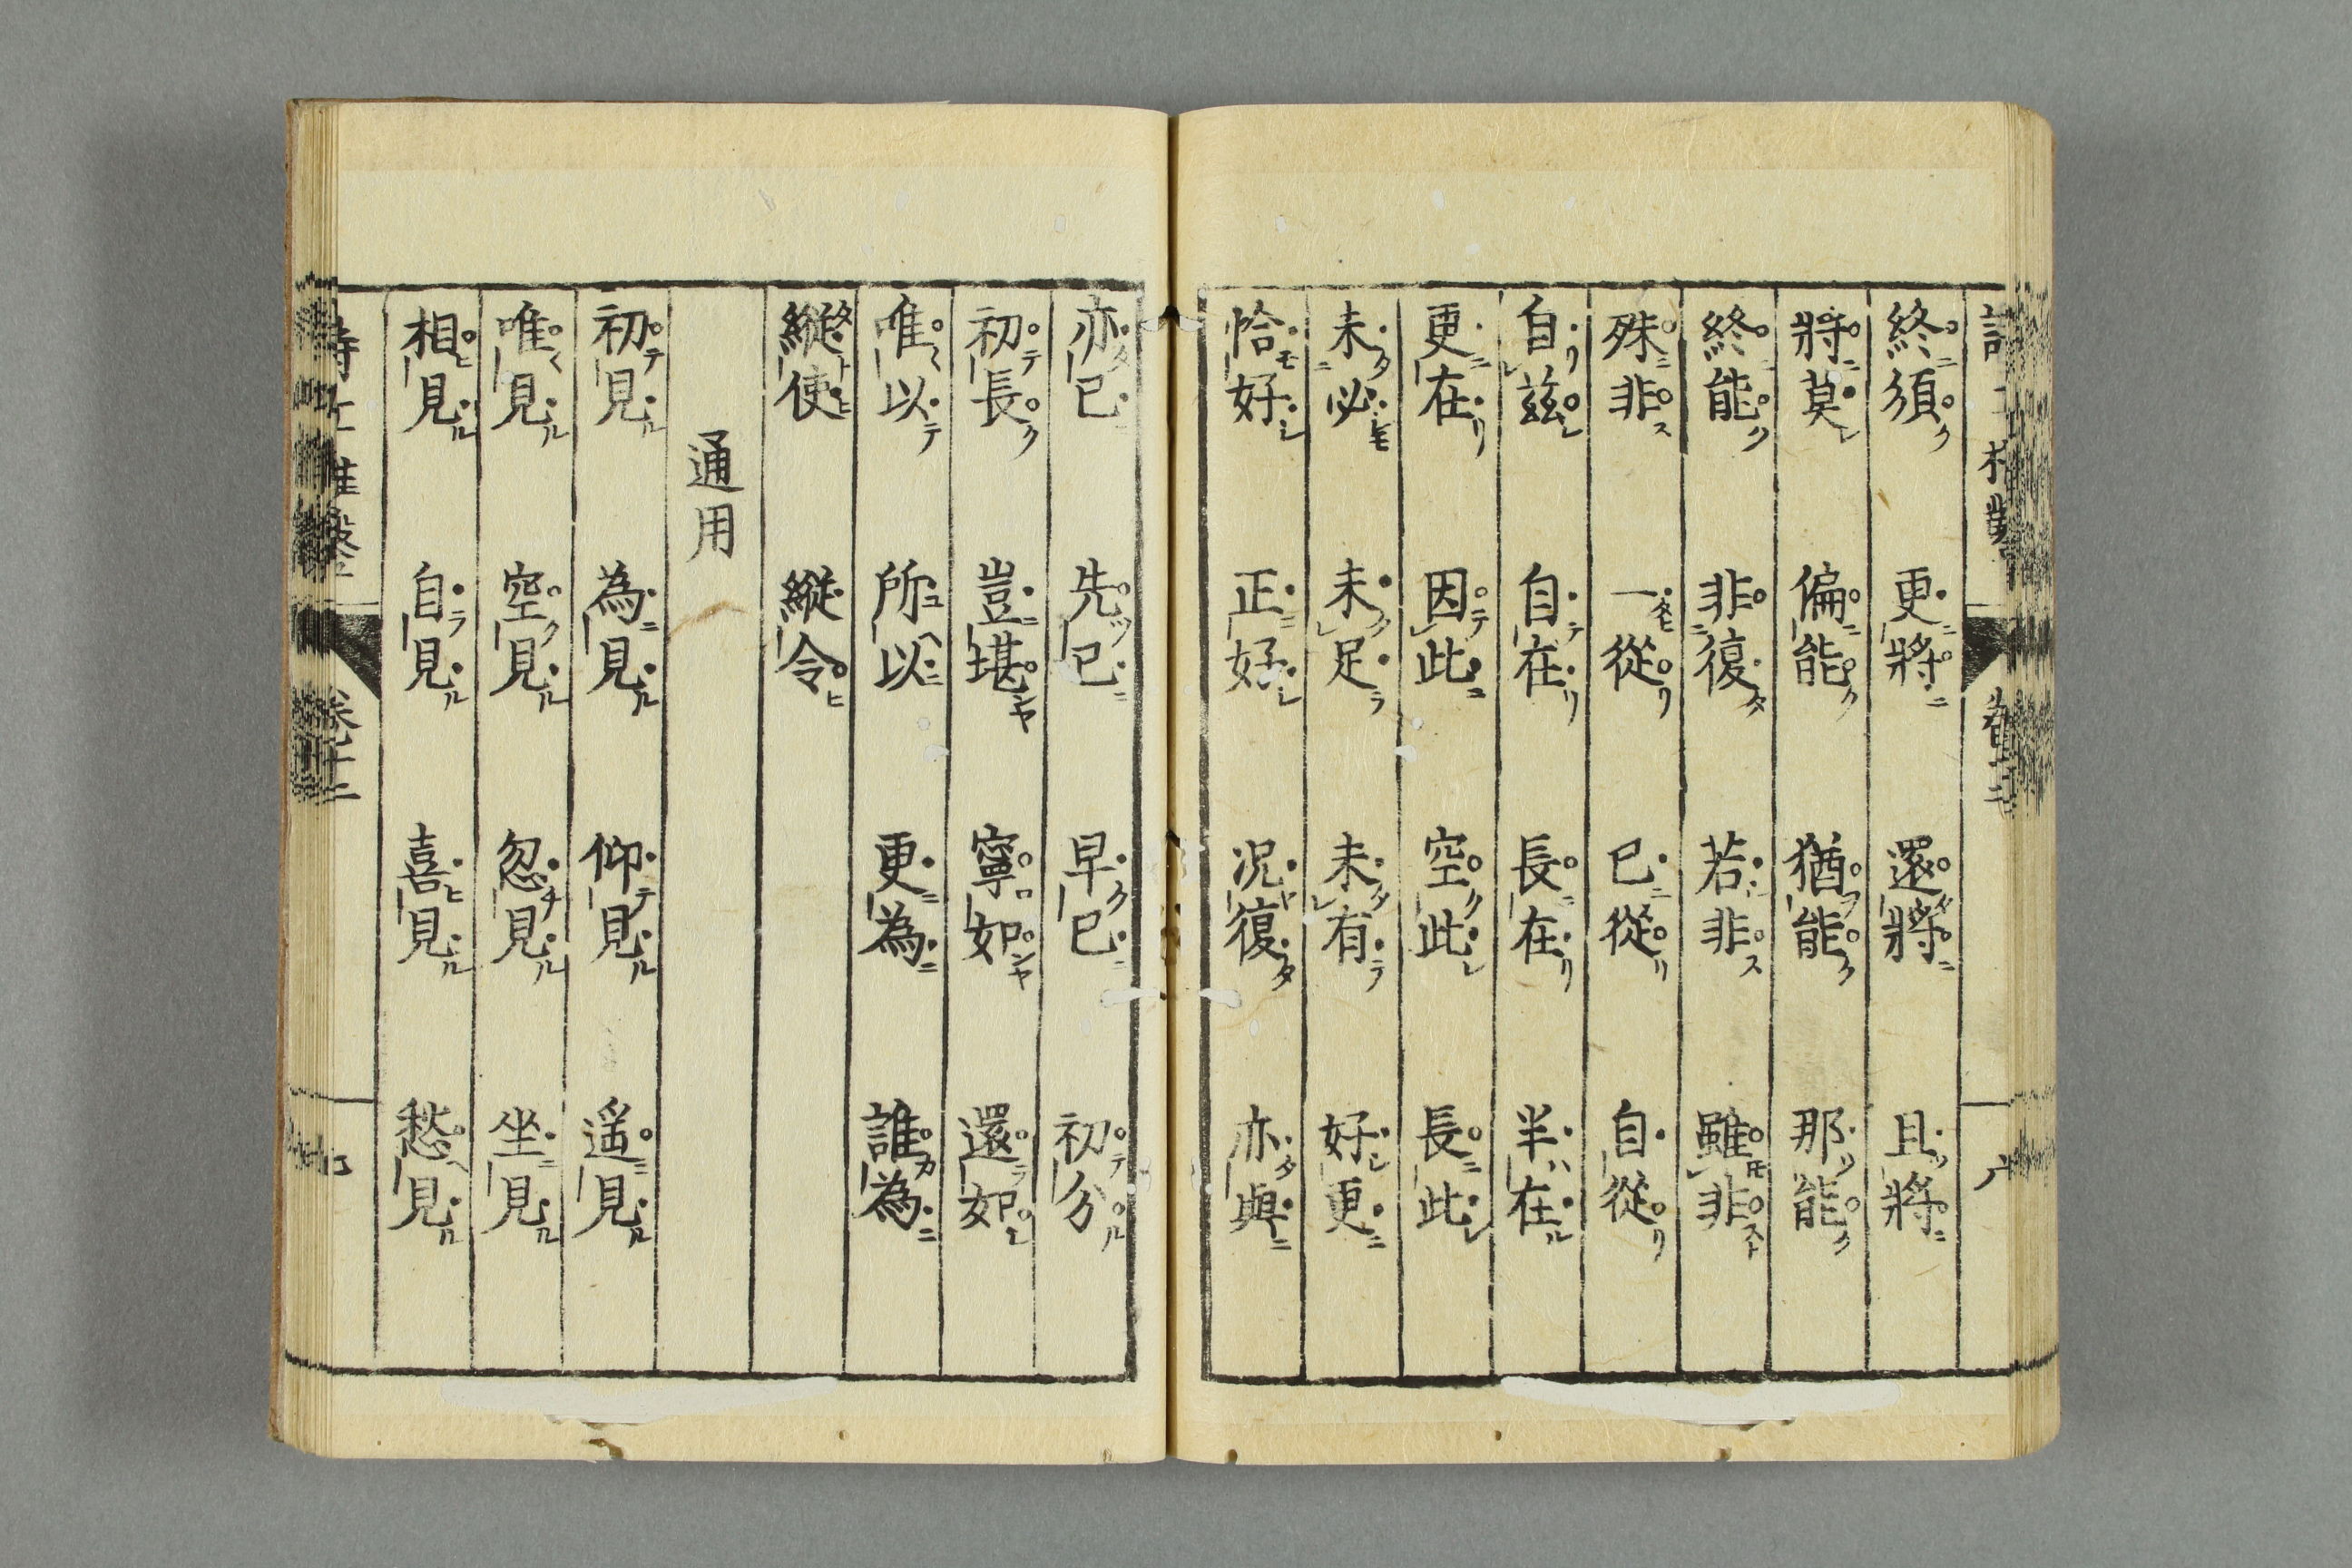 終須 更將 還將 且將
將莫 偏能 猶能 那能
終能 非復 若非 雖非
殊非 一從 已從 自從
自茲 自在 長在 半在
更在 因此 空此 長此
未必 未足 未有 好更
恰好 正好 況復 亦與
亦已 先已 早已 初分
初長 豈堪 寧如 還如
唯以 所以 更為 誰為
縱使 縱令
通用
初見 為見 仰見 遥見
唯見 空見 忽見 坐見
相見 自見 喜見 愁見